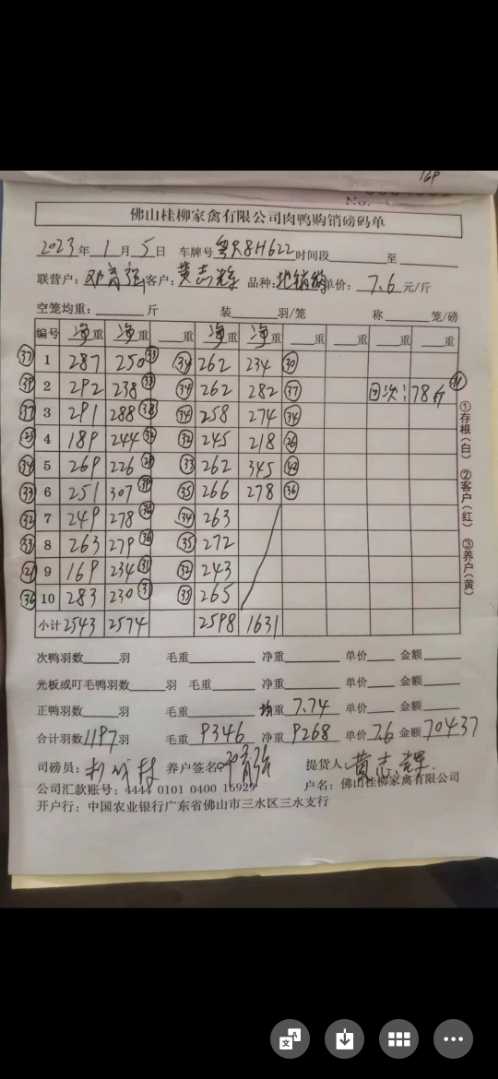 169
No.
佛山桂柳家禽有限公司肉鸭购销磅码单
2023年 1月 5日 车牌号 8H622 时间段 至
联营户: 客户: 黄志辉 品种: 单价: 7.6 元/斤
空笼均重: 斤 装 羽/笼 称 笼/磅
编号 净重 净重 重 净重 净重 重 重 重 重
1 287 250 34 262 234 30
2 292 238 33 34 262 282 37 回次:78斤
3 291 288 38 34 258 274 34
4 189 244 32 245 218
5 269 226 33 262 345
6 251 307 35 266 278 36
7 249 278 36 34 263
8 263 279 36 35 272
9 169 234 31 32 243
10 283 230 35 265
小计 2543 2574 2598 1631
①存根(白) ②客户(红) ③养户(黄)
次鸭羽数 羽 毛重 净重 单价 金额
光板或叮毛鸭羽数 羽 毛重 净重 单价 金额
正鸭羽数 羽 毛重 均重 7.74 单价 金额
合计羽数 1197 羽 毛重 9346 净重 9268 单价 7.6 金额 70437
司磅员: 养户签名 提货人 黄志辉
公司汇款账号: 4444 0101 0400 15929 户名: 佛山桂柳家禽有限公司
开户行: 中国农业银行广东省佛山市三水区三水支行